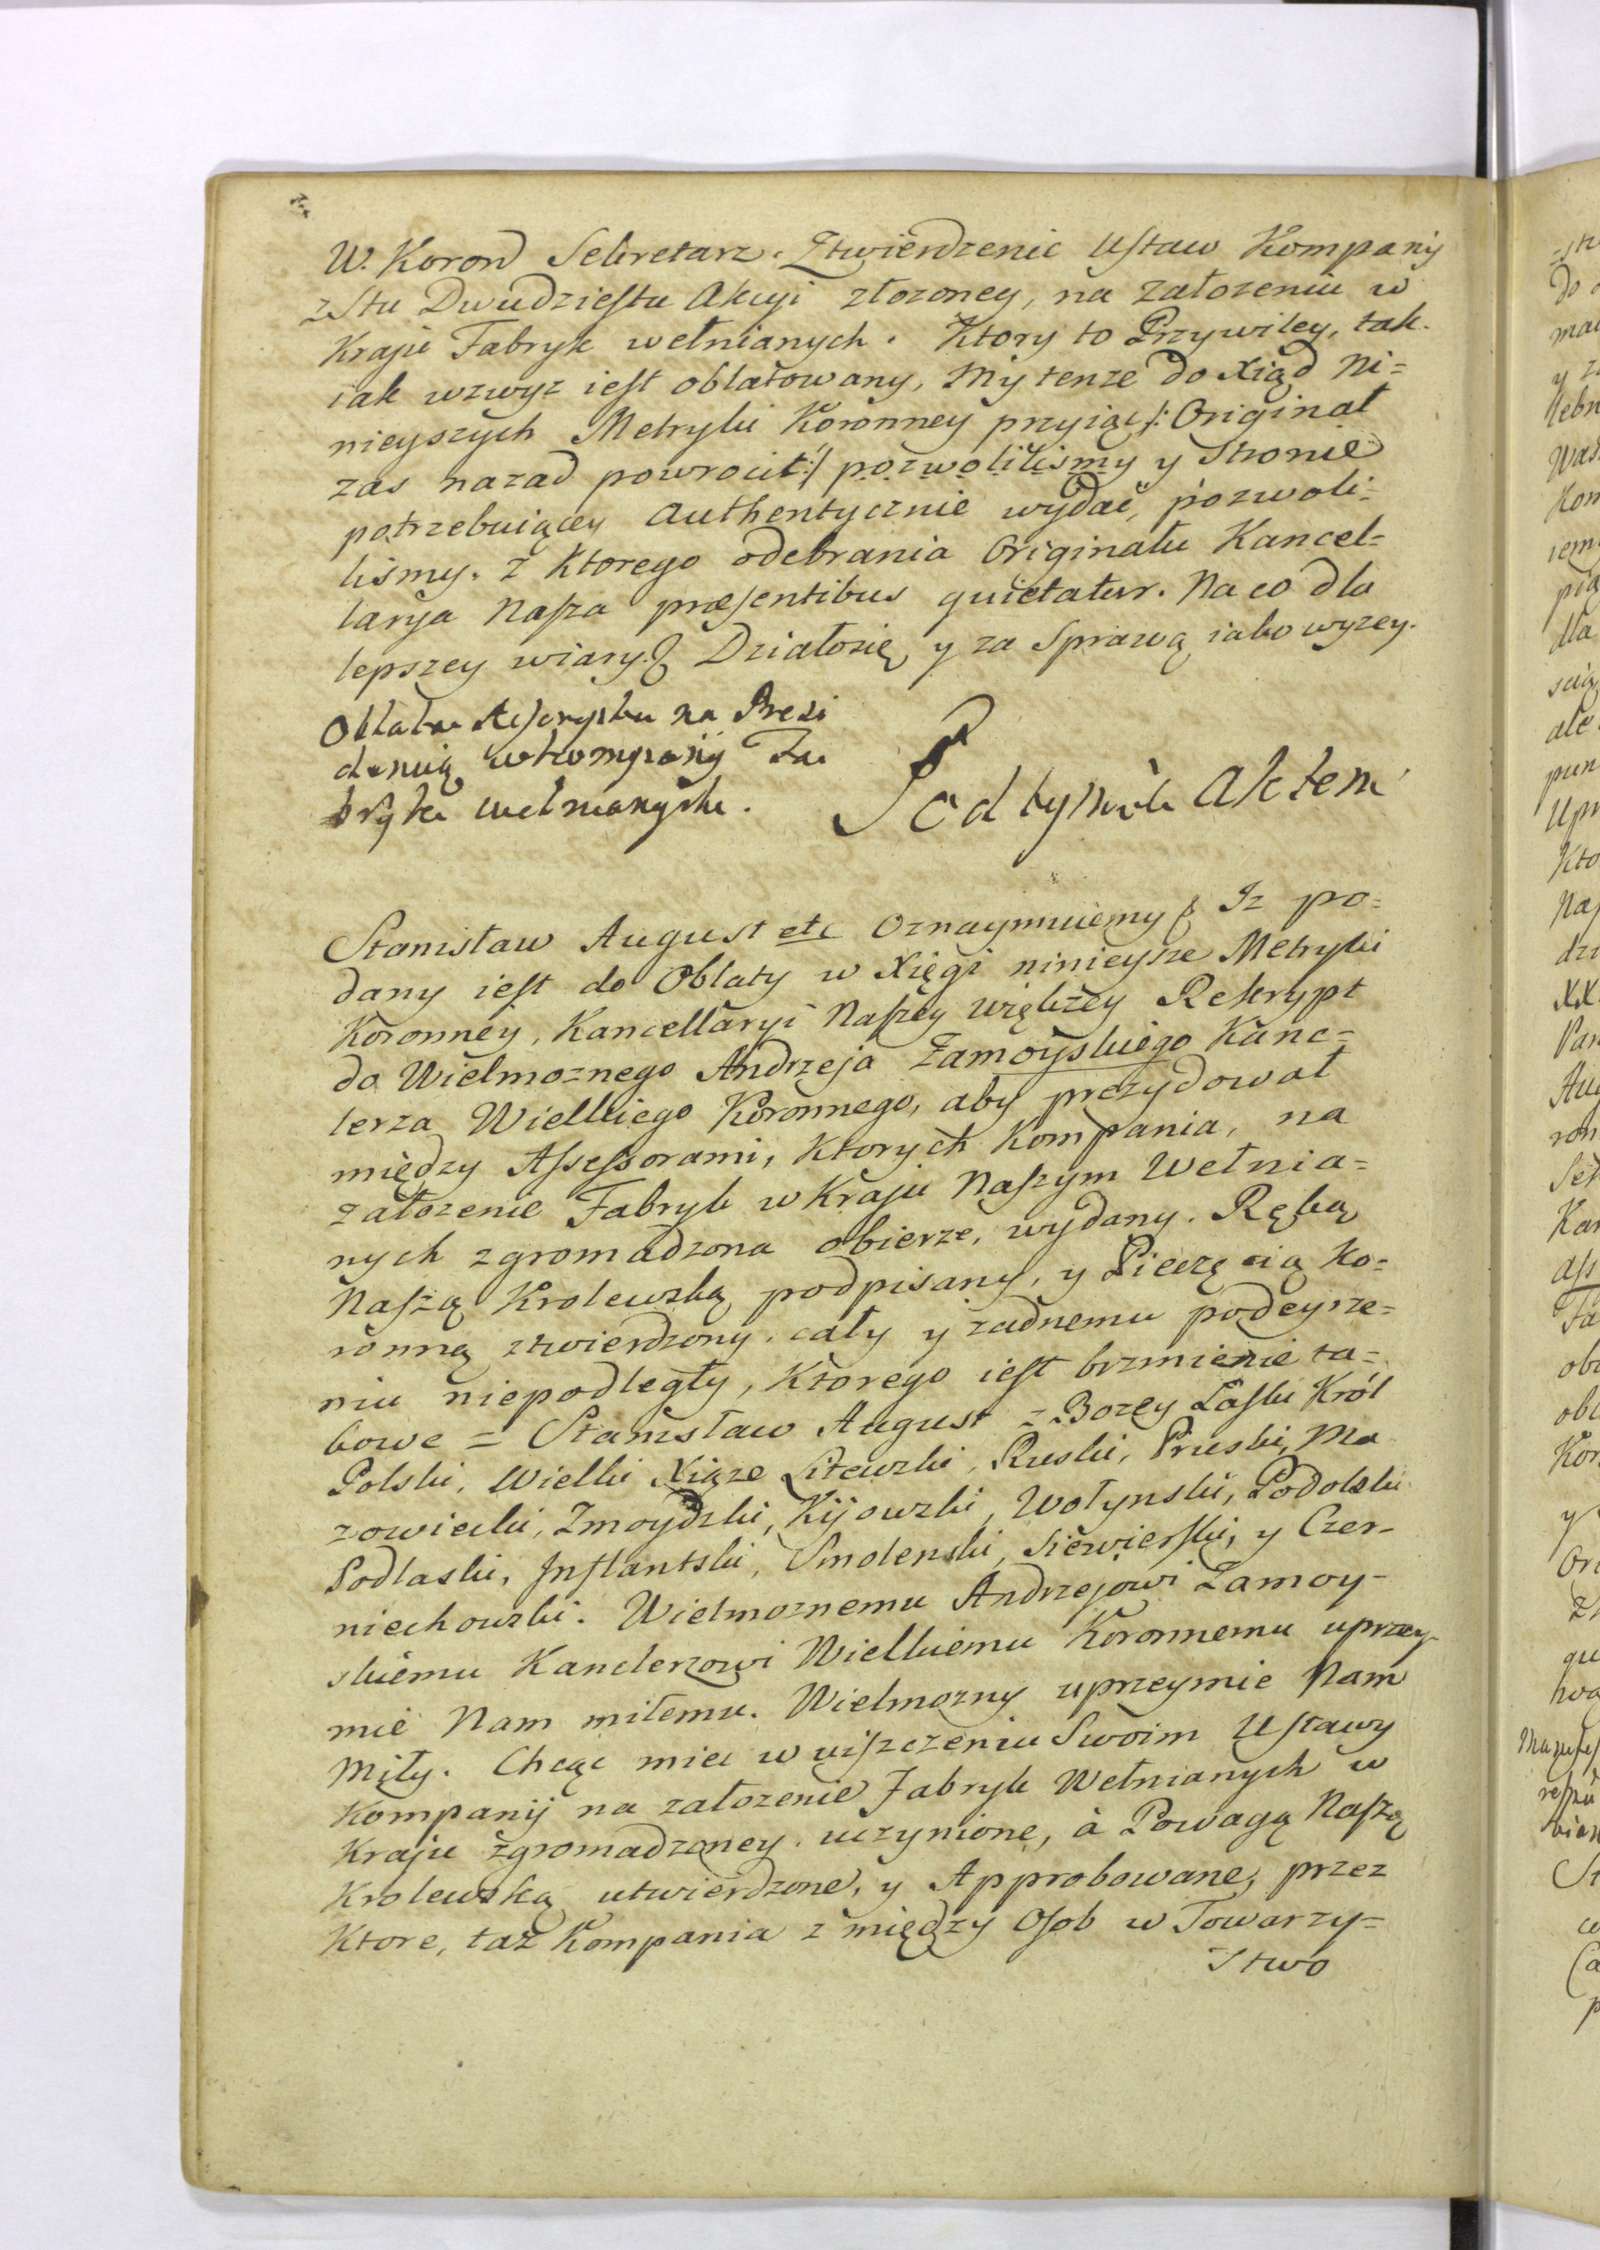 W. Koron Sekretarz. Ztwierdzenie Ustaw Kompanij
z Stu Dwudziestu Akcyi złozoney, na Załozeniu w
Kraju Fabryk wełnianych. Ktory to Przywiley, tak
iak wzwyz iest oblatowany, My tenze do Xiąd Ni=
nieyszych Metryki Koronney przyiąć /: Originał
zas nazad powrocić :/ pozwoliliśmy y Stronie
potrzebuiącey Authentycznie wydać, pozwoli=
liśmy. z Ktorego odebrania Originału Kancel=
larya Nasza præsentibus quietatur. Na co dla
lepszey wiary. Działosię y za Sprawą iako wyzey.
Oblata Reskryptu na Prezi
dencią w Kompanij Fa
bryk wełnianych.
Pod tymże Aktem
Stanisław August etc Oznaymuiemy Iz po=
dany iest do Oblaty w Xięgi ninieysze Metryki
Koronney, Kancellaryi Naszey większey Reskrypt
do Wielmoznego Andrzeja Zamoyskiego Kanc=
lerza Wielkiego Koronnego, aby prezydował
między Assessorami, Ktorych Kompania, na
załozenie Fabryk w Kraju Naszym Wełnia=
nych zgromadzona obierze, wydany. Ręką
Naszą Krolewską podpisany, y Pieczęcią Ko=
ronną ztwierdzony, cały y zadnemu podeysze=
niu niepodległy, Ktorego iest brzmienie ta=
kowe = Stanisław August z Bozey Łaski Król
Polski, Wielki Xiąze Litewski, Ruski, Pruski, Ma
zowiecki, Zmoydzki, Kijowski, Wołynski, Podolski
Podlaski, Inflantski, Smolenski, Siewierski, y Czer-
niechowski. Wielmoznemu Andrzejowi Zamoy-
skiemu Kanclerzowi Wielkiemu Koronnemu uprzey-
mie Nam miłemu. Wielmozny uprzeymie Nam
Miły. Chcąc miec w uiszczeniu Swoim Ustawy
Kompanij na załozenie Fabryk Wełnianych w
Kraju zgromadzoney uczynione, à Powagą Naszą
Krolewską utwierdzone, y Approbowane, przez
Ktore, taz Kompania z między Osob w Towarzy=
stwo